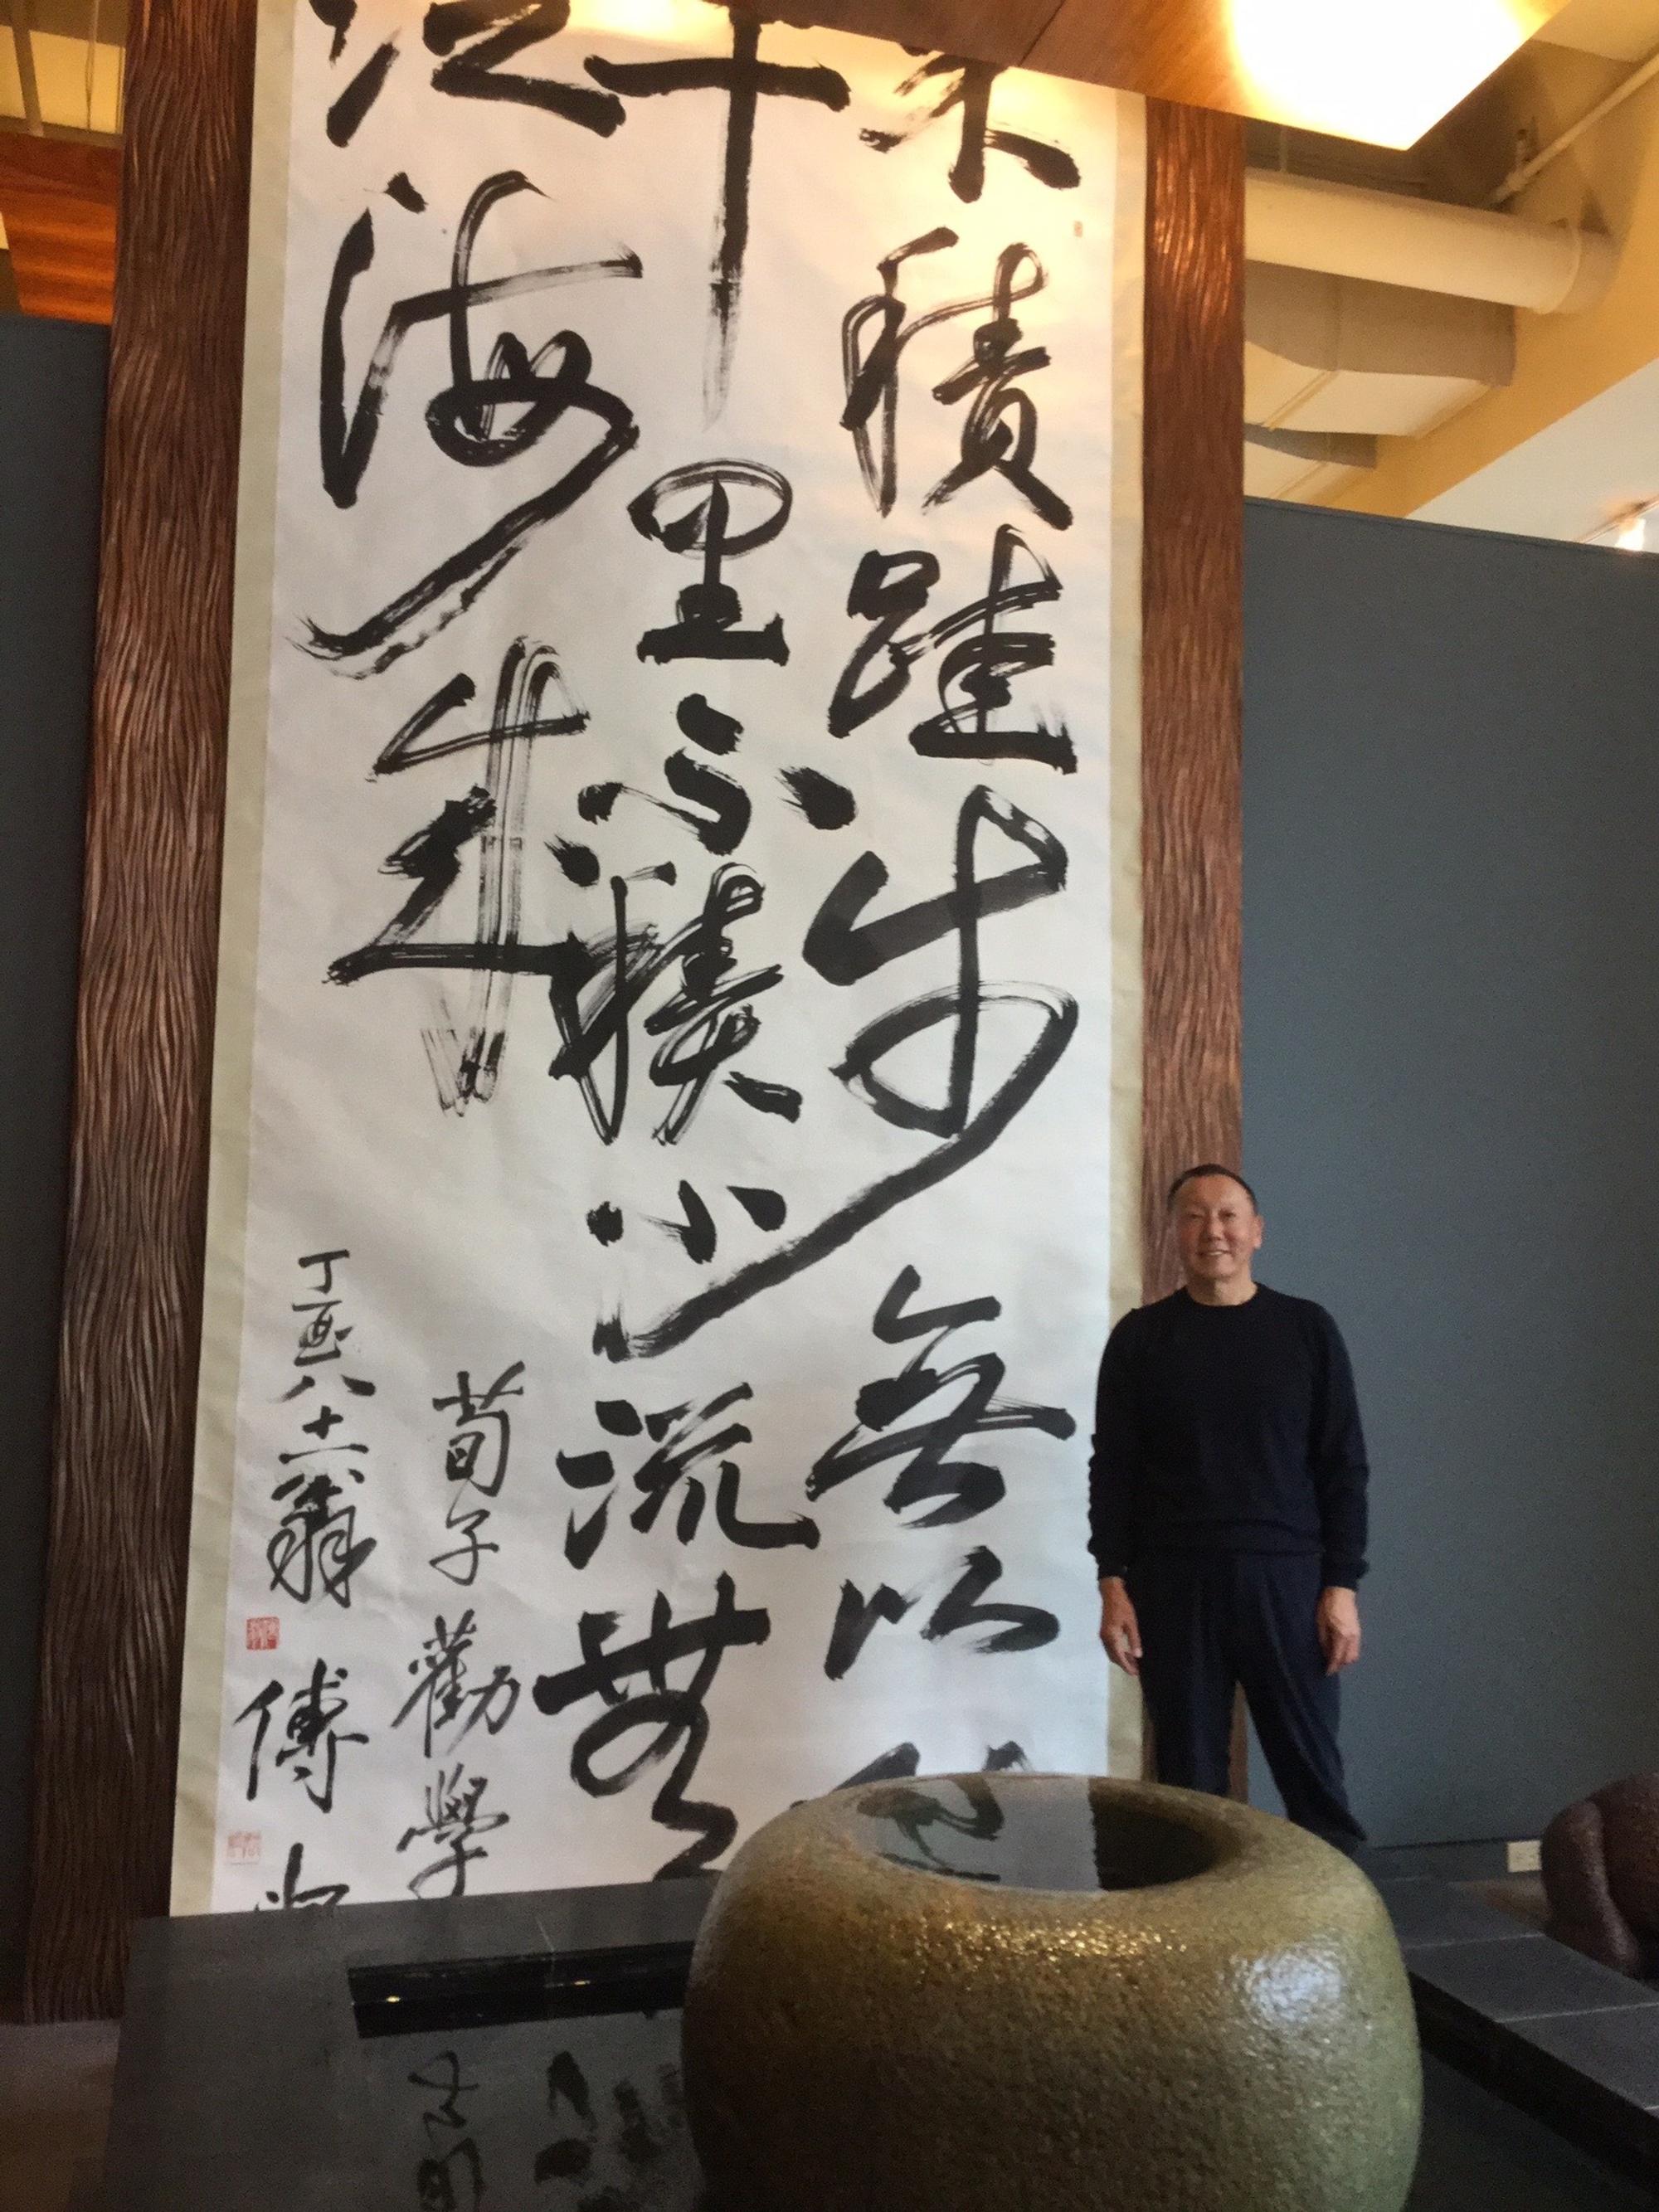 不積跬步無以
千里不積小流無
江海
荀子勸學
丁酉八十翁傅